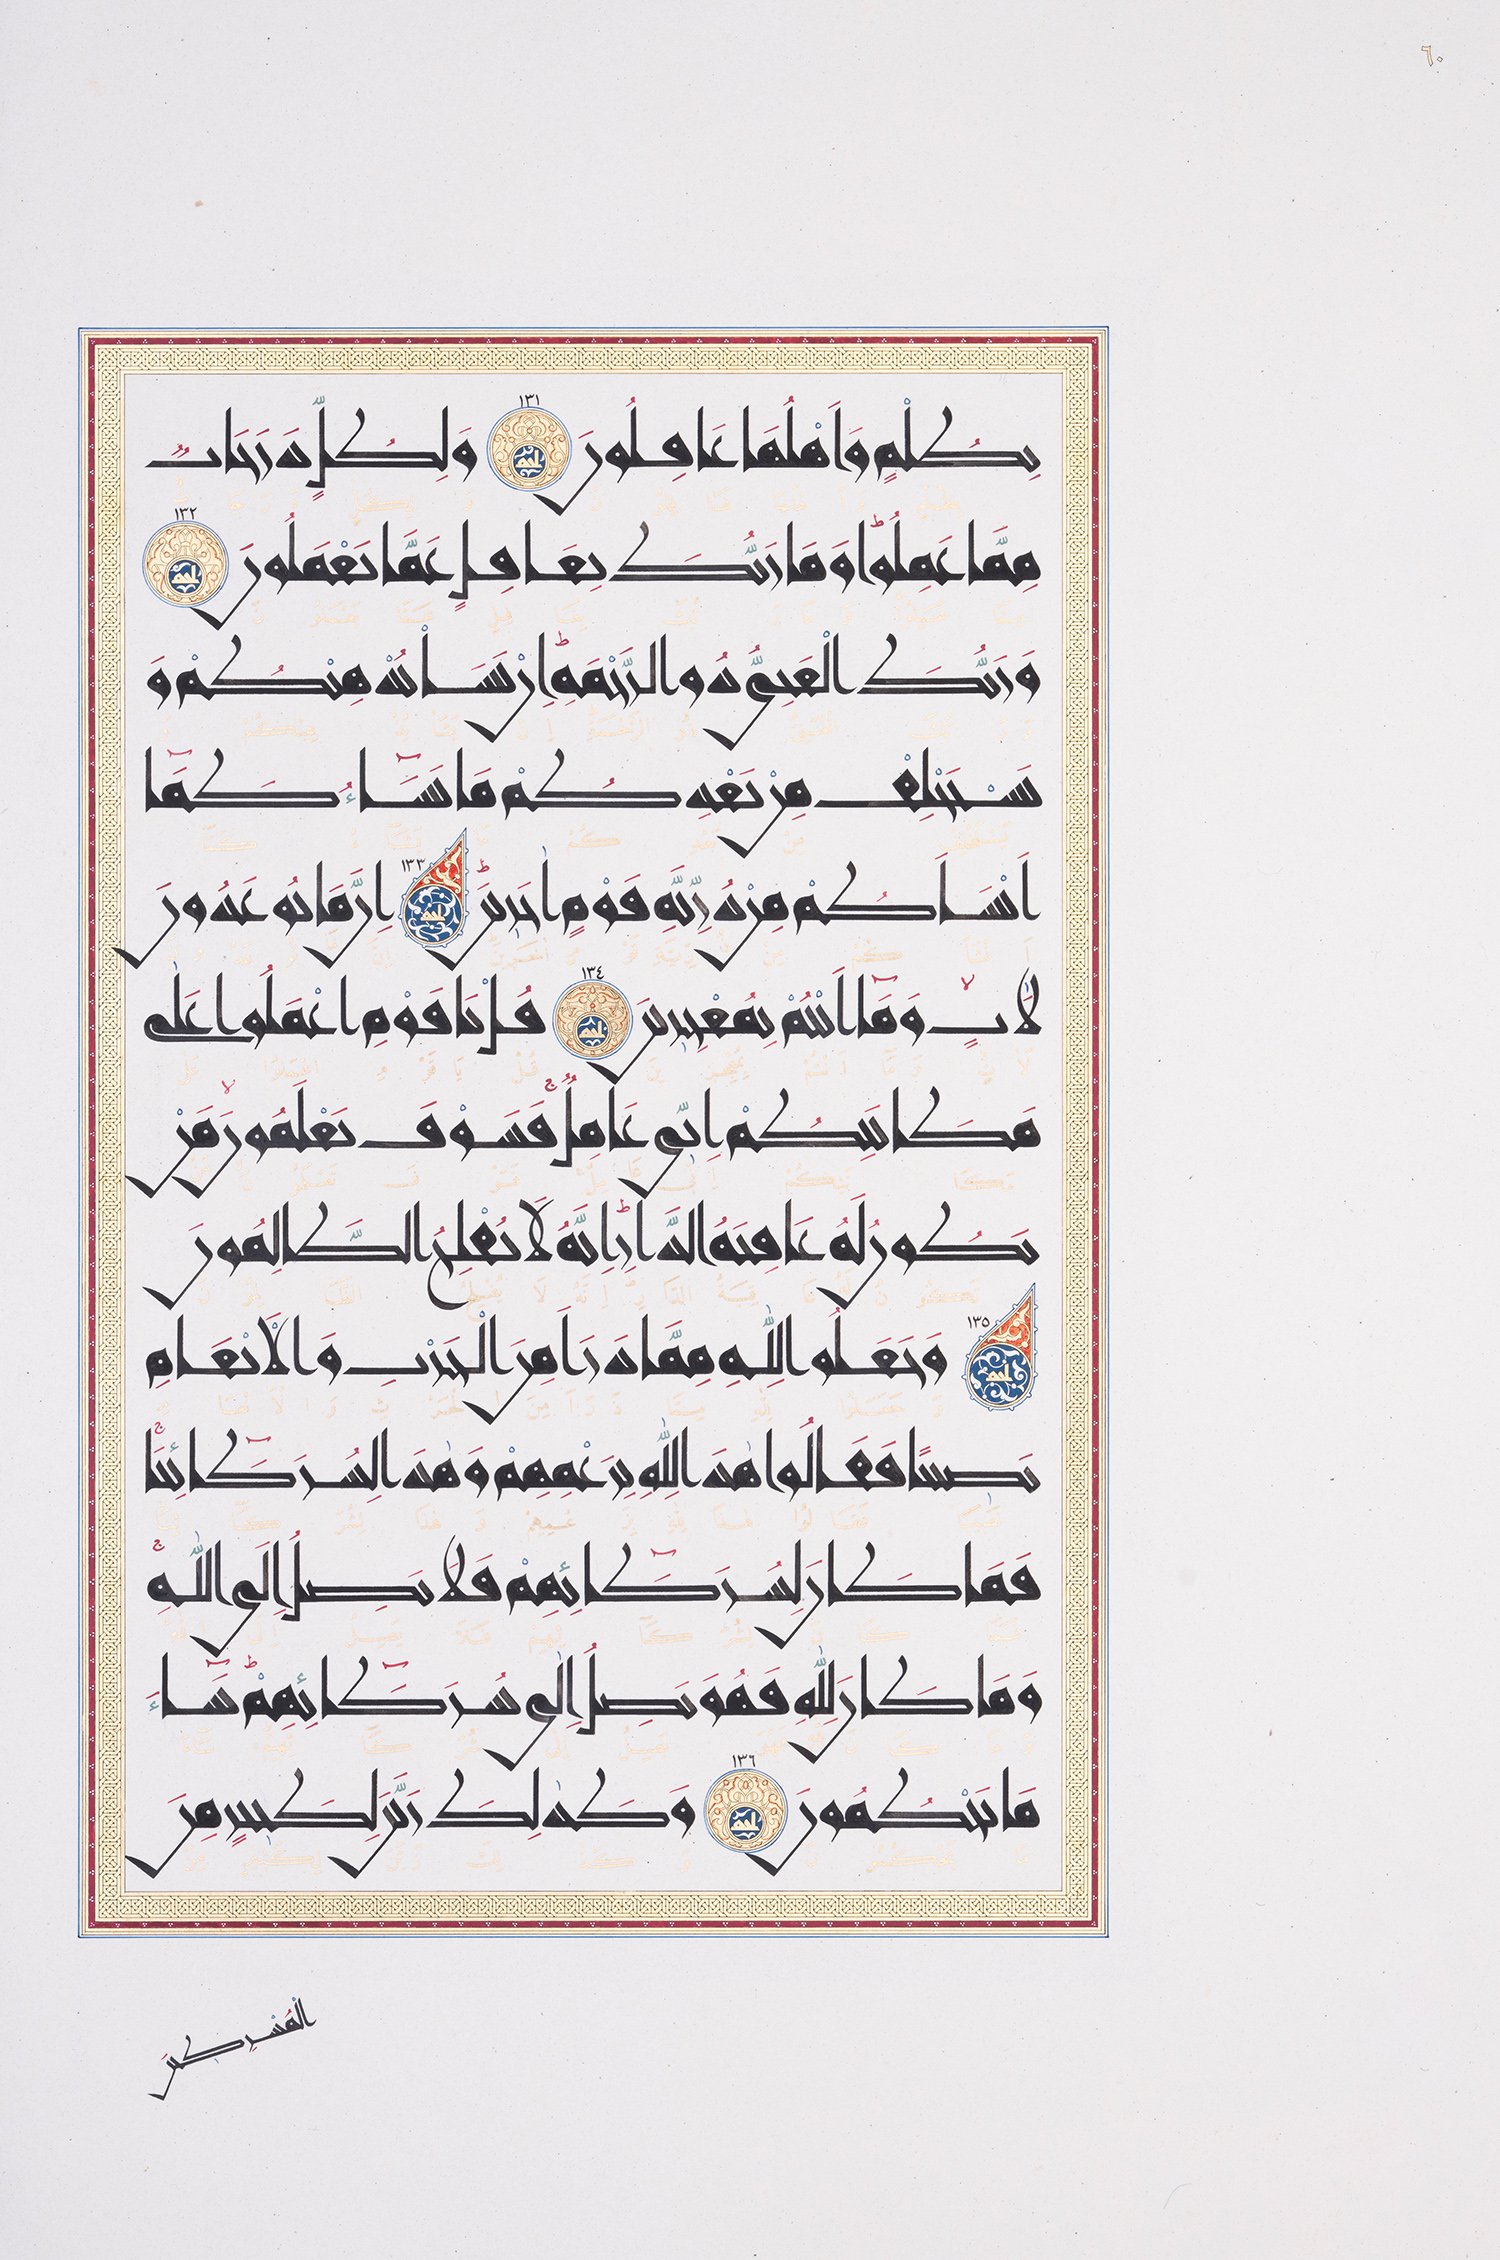 ٦٠
بِظُلْمٍ وَاَهْلُهَا غَافِلُونَ ١٣١ وَلِكُلٍّ دَرَجَاتٌ
مِمَّا عَمِلُواۜ وَمَا رَبُّكَ بِغَافِلٍ عَمَّا يَعْمَلُونَ ١٣٢
وَرَبُّكَ الْغَنِيُّ ذُو الرَّحْمَةِۜ اِنْ يَشَأْ يُذْهِبْكُمْ وَ
يَسْتَخْلِفْ مِنْ بَعْدِكُمْ مَا يَشَٓاءُ كَمَٓا
اَنْشَاَكُمْ مِنْ ذُرِّيَّةِ قَوْمٍ اٰخَرِينَۜ ١٣٣ اِنَّ مَا تُوعَدُونَ
لَاٰتٍ وَمَٓا اَنْتُمْ بِمُعْجِزِينَ ١٣٤ قُلْ يَا قَوْمِ اعْمَلُوا عَلٰى
مَكَانَتِكُمْ اِنِّي عَامِلٌۚ فَسَوْفَ تَعْلَمُونَۙ مَنْ
تَكُونُ لَهُ عَاقِبَةُ الدَّارِۜ اِنَّهُ لَا يُفْلِحُ الظَّالِمُونَ
١٣٥ وَجَعَلُوا لِلّٰهِ مِمَّا ذَرَاَ مِنَ الْحَرْثِ وَالْاَنْعَامِ
نَصِيبًا فَقَالُوا هٰذَا لِلّٰهِ بِزَعْمِهِمْ وَهٰذَا لِشُرَكَٓائِنَاۚ
فَمَا كَانَ لِشُرَكَٓائِهِمْ فَلَا يَصِلُ اِلَى اللّٰهِۚ
وَمَا كَانَ لِلّٰهِ فَهُوَ يَصِلُ اِلٰى شُرَكَٓائِهِمْۜ سَٓاءَ
مَا يَحْكُمُونَ ١٣٦ وَكَذٰلِكَ زَيَّنَ لِكَثِيرٍ مِنَ
الْمُشْرِكِينَ